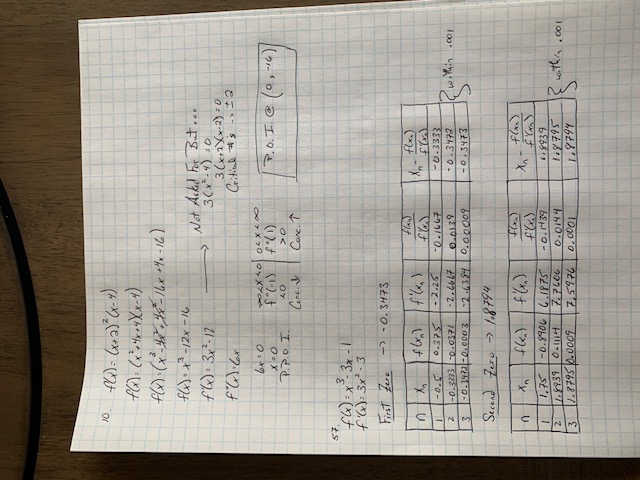 10. f(x) = (x+2)²(x-4)
f(x) = (x²+4x+4)(x-4)
f(x) = (x³-4x²+4x²-16x+4x-16)
f(x) = x³-12x-16
f'(x) = 3x²-12
f''(x) = 6x
Not Asked For But...
3(x²-4) = 0
3(x+2)(x-2) = 0
Critical #'s → ±2
6x=0
x=0
P.O.I.
-∞<x<0 | 0<x<∞
f''(-1) | f''(1)
<0 | >0
Conc. ↓ | Conc. ↑
P.O.I. @ (0, -16)
57.
f(x) = x³-3x-1
f'(x) = 3x²-3
First Zero → -0.3473
n | xₙ | f(xₙ) | f'(xₙ) | f(xₙ)/f'(xₙ) | xₙ - f(xₙ)/f'(xₙ)
1 | -0.5 | 0.375 | -2.25 | -0.1667 | -0.3333
2 | -0.3333 | -0.0371 | -2.6667 | 0.0139 | -0.3472
3 | -0.3472 | -0.0003 | -2.6384 | 0.00009 | -0.3473
} within .001
Second Zero → 1.8794
n | xₙ | f(xₙ) | f'(xₙ) | f(xₙ)/f'(xₙ) | xₙ - f(xₙ)/f'(xₙ)
1 | 1.75 | -0.8906 | 6.1875 | -0.1439 | 1.8939
2 | 1.8939 | 0.1114 | 7.7606 | 0.0144 | 1.8795
3 | 1.8795 | 0.0009 | 7.5976 | 0.0001 | 1.8794
} within .001